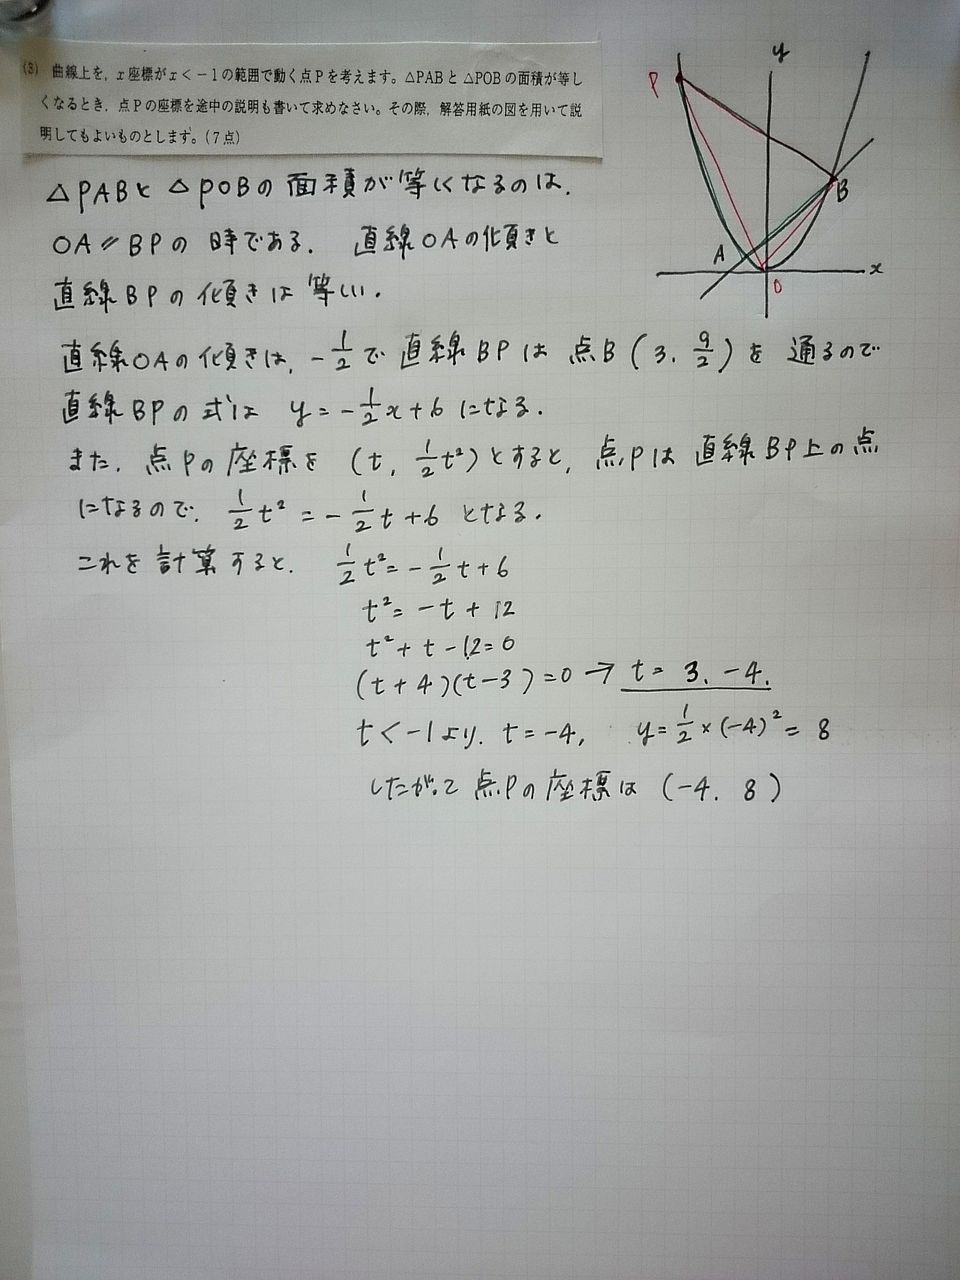 (3) 曲線上を，x座標がx＜－1の範囲で動く点Pを考えます。△PABと△POBの面積が等し
くなるとき，点Pの座標を途中の説明も書いて求めなさい。その際，解答用紙の図を用いて説
明してもよいものとします。(7点)
y
P
B
A
x
O
△PABと△POBの面積が等しくなるのは、
OA∥BPの時である。 直線OAの傾きと
直線BPの傾きは等しい。
直線OAの傾きは、-1/2で直線BPは点B(3, 9/2)を通るので
直線BPの式は y=-1/2x+6になる。
また、点Pの座標を(t, 1/2t²)とすると、点Pは直線BP上の点
になるので、1/2t²=-1/2t+6となる。
これを計算すると、 1/2t²=-1/2t+6
t²=-t+12
t²+t-12=0
(t+4)(t-3)=0→t=3、-4、
t<-1より、t=-4, y=1/2×(-4)²=8
したがって点Pの座標は(-4, 8)